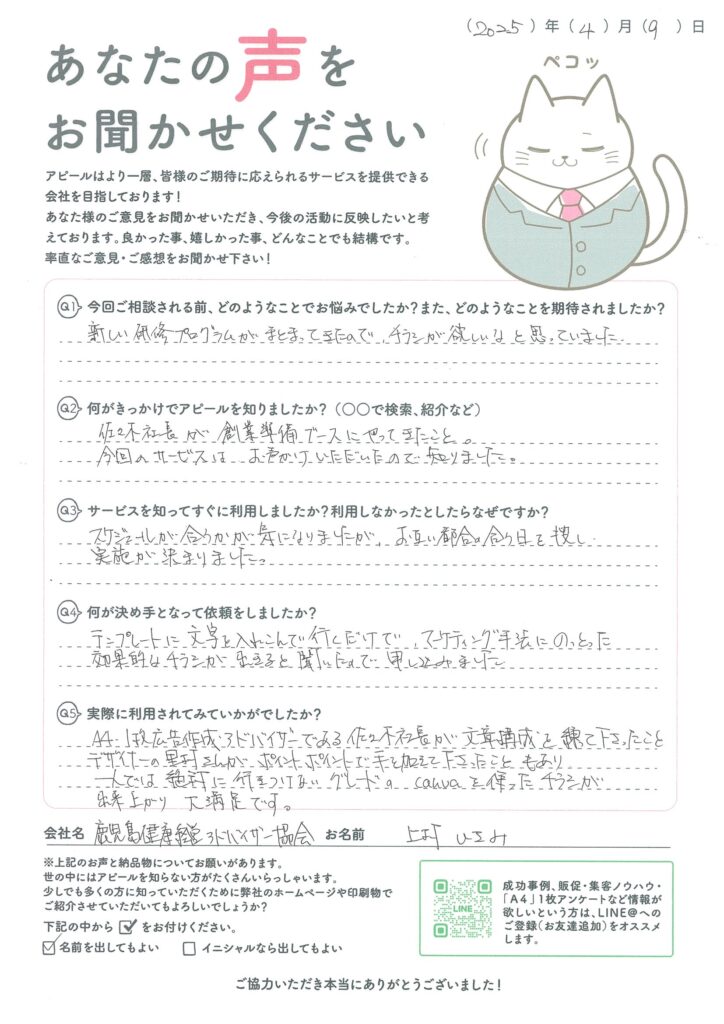 (2025)年(4)月(9)日
あなたの声を
お聞かせください
ペコッ
アピールはより一層、皆様のご期待に応えられるサービスを提供できる
会社を目指しております！
あなた様のご意見をお聞かせいただき、今後の活動に反映したいと考
えております。良かった事、嬉しかった事、どんなことでも結構です。
率直なご意見・ご感想をお聞かせ下さい！
Q1 今回ご相談される前、どのようなことでお悩みでしたか？また、どのようなことを期待されましたか？
新しい研修プログラムがまとまってきたので、チラシが欲しいなと思っていました。
Q2 何がきっかけでアピールを知りましたか？（〇〇で検索、紹介など）
佐々木社長が創業準備ブースにやってきたこと。
今回のサービスはお声かけいただいたので知りました。
Q3 サービスを知ってすぐに利用しましたか？利用しなかったとしたらなぜですか？
スケジュールが合うかが気になりましたが、お互い都合の合う日を捜し
実施が決まりました。
Q4 何が決め手となって依頼をしましたか？
テンプレートに文字を入れこんで行くだけで、マーケティング手法にのっとった
効果的なチラシが出来ると聞いたので申し込みました
Q5 実際に利用されてみていかがでしたか？
A4・1枚広告作成アドバイザーである佐々木社長が文章構成を練って下さったこと
デザイナーの里村さんがポイントポイントで手を加えて下さったこともあり
一人では絶対に行きつけないグレードのcanvaを使ったチラシが
出来上がり大満足です。
会社名 鹿児島健康経営アドバイザー協会 お名前 上村 ひとみ
※上記のお声と納品物についてお願いがあります。
世の中にはアピールを知らない方がたくさんいらっしゃいます。
少しでも多くの方に知っていただくために弊社のホームページや印刷物で
ご紹介させていただいてもよろしいでしょうか？
下記の中から☑をお付けください。
☑名前を出してもよい □イニシャルなら出してもよい
LINE
成功事例、販促・集客ノウハウ・
「A4」1枚アンケートなど情報が
欲しいという方は、LINE@への
ご登録（お友達追加）をオススメ
します。
ご協力いただき本当にありがとうございました！